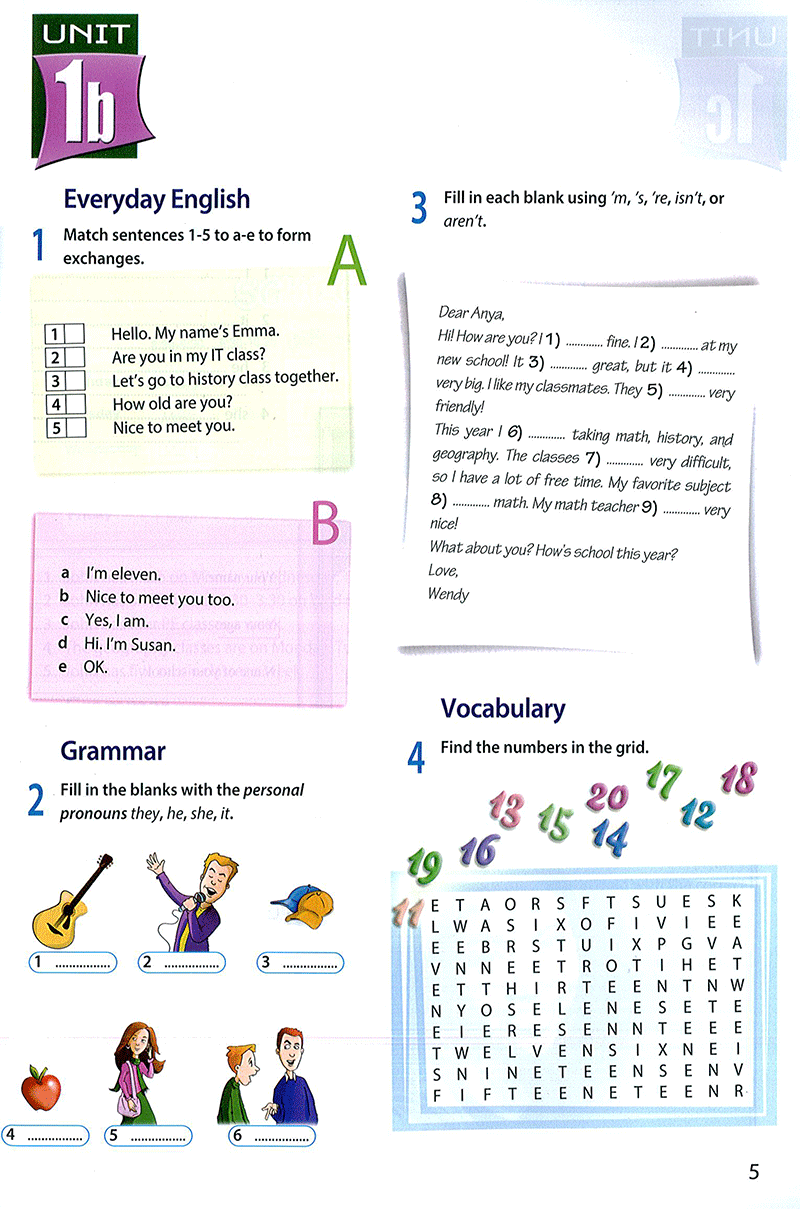 UNIT
1b
UNIT
1c
Everyday English
1 Match sentences 1-5 to a-e to form
exchanges.
A
1 Hello. My name's Emma.
2 Are you in my IT class?
3 Let's go to history class together.
4 How old are you?
5 Nice to meet you.
B
a I'm eleven.
b Nice to meet you too.
c Yes, I am.
d Hi. I'm Susan.
e OK.
Grammar
2 Fill in the blanks with the personal
pronouns they, he, she, it.
1 ..............
2 ..............
3 ..............
4 ..............
5 ..............
6 ..............
3 Fill in each blank using 'm, 's, 're, isn't, or
aren't.
Dear Anya,
Hi! How are you? I 1) ............ fine. I 2) ............ at my
new school! It 3) ............ great, but it 4) ............
very big. I like my classmates. They 5) ............ very
friendly!
This year I 6) ............ taking math, history, and
geography. The classes 7) ............ very difficult,
so I have a lot of free time. My favorite subject
8) ............ math. My math teacher 9) ............ very
nice!
What about you? How's school this year?
Love,
Wendy
Vocabulary
4 Find the numbers in the grid.
13 15 20 17 18
19 16 14 12
11
E T A O R S F T S U E S K
L W A S I X O F I V I E E
E E B R S T U I X P G V A
V N N E E T R O T I H E T
E T T H I R T E E N T N W
N Y O S E L E N E S E T E
E I E R E S E N N T E E E
T W E L V E N S I X N E I
S N I N E T E E N S E N V
F I F T E E N E T E E N R
5